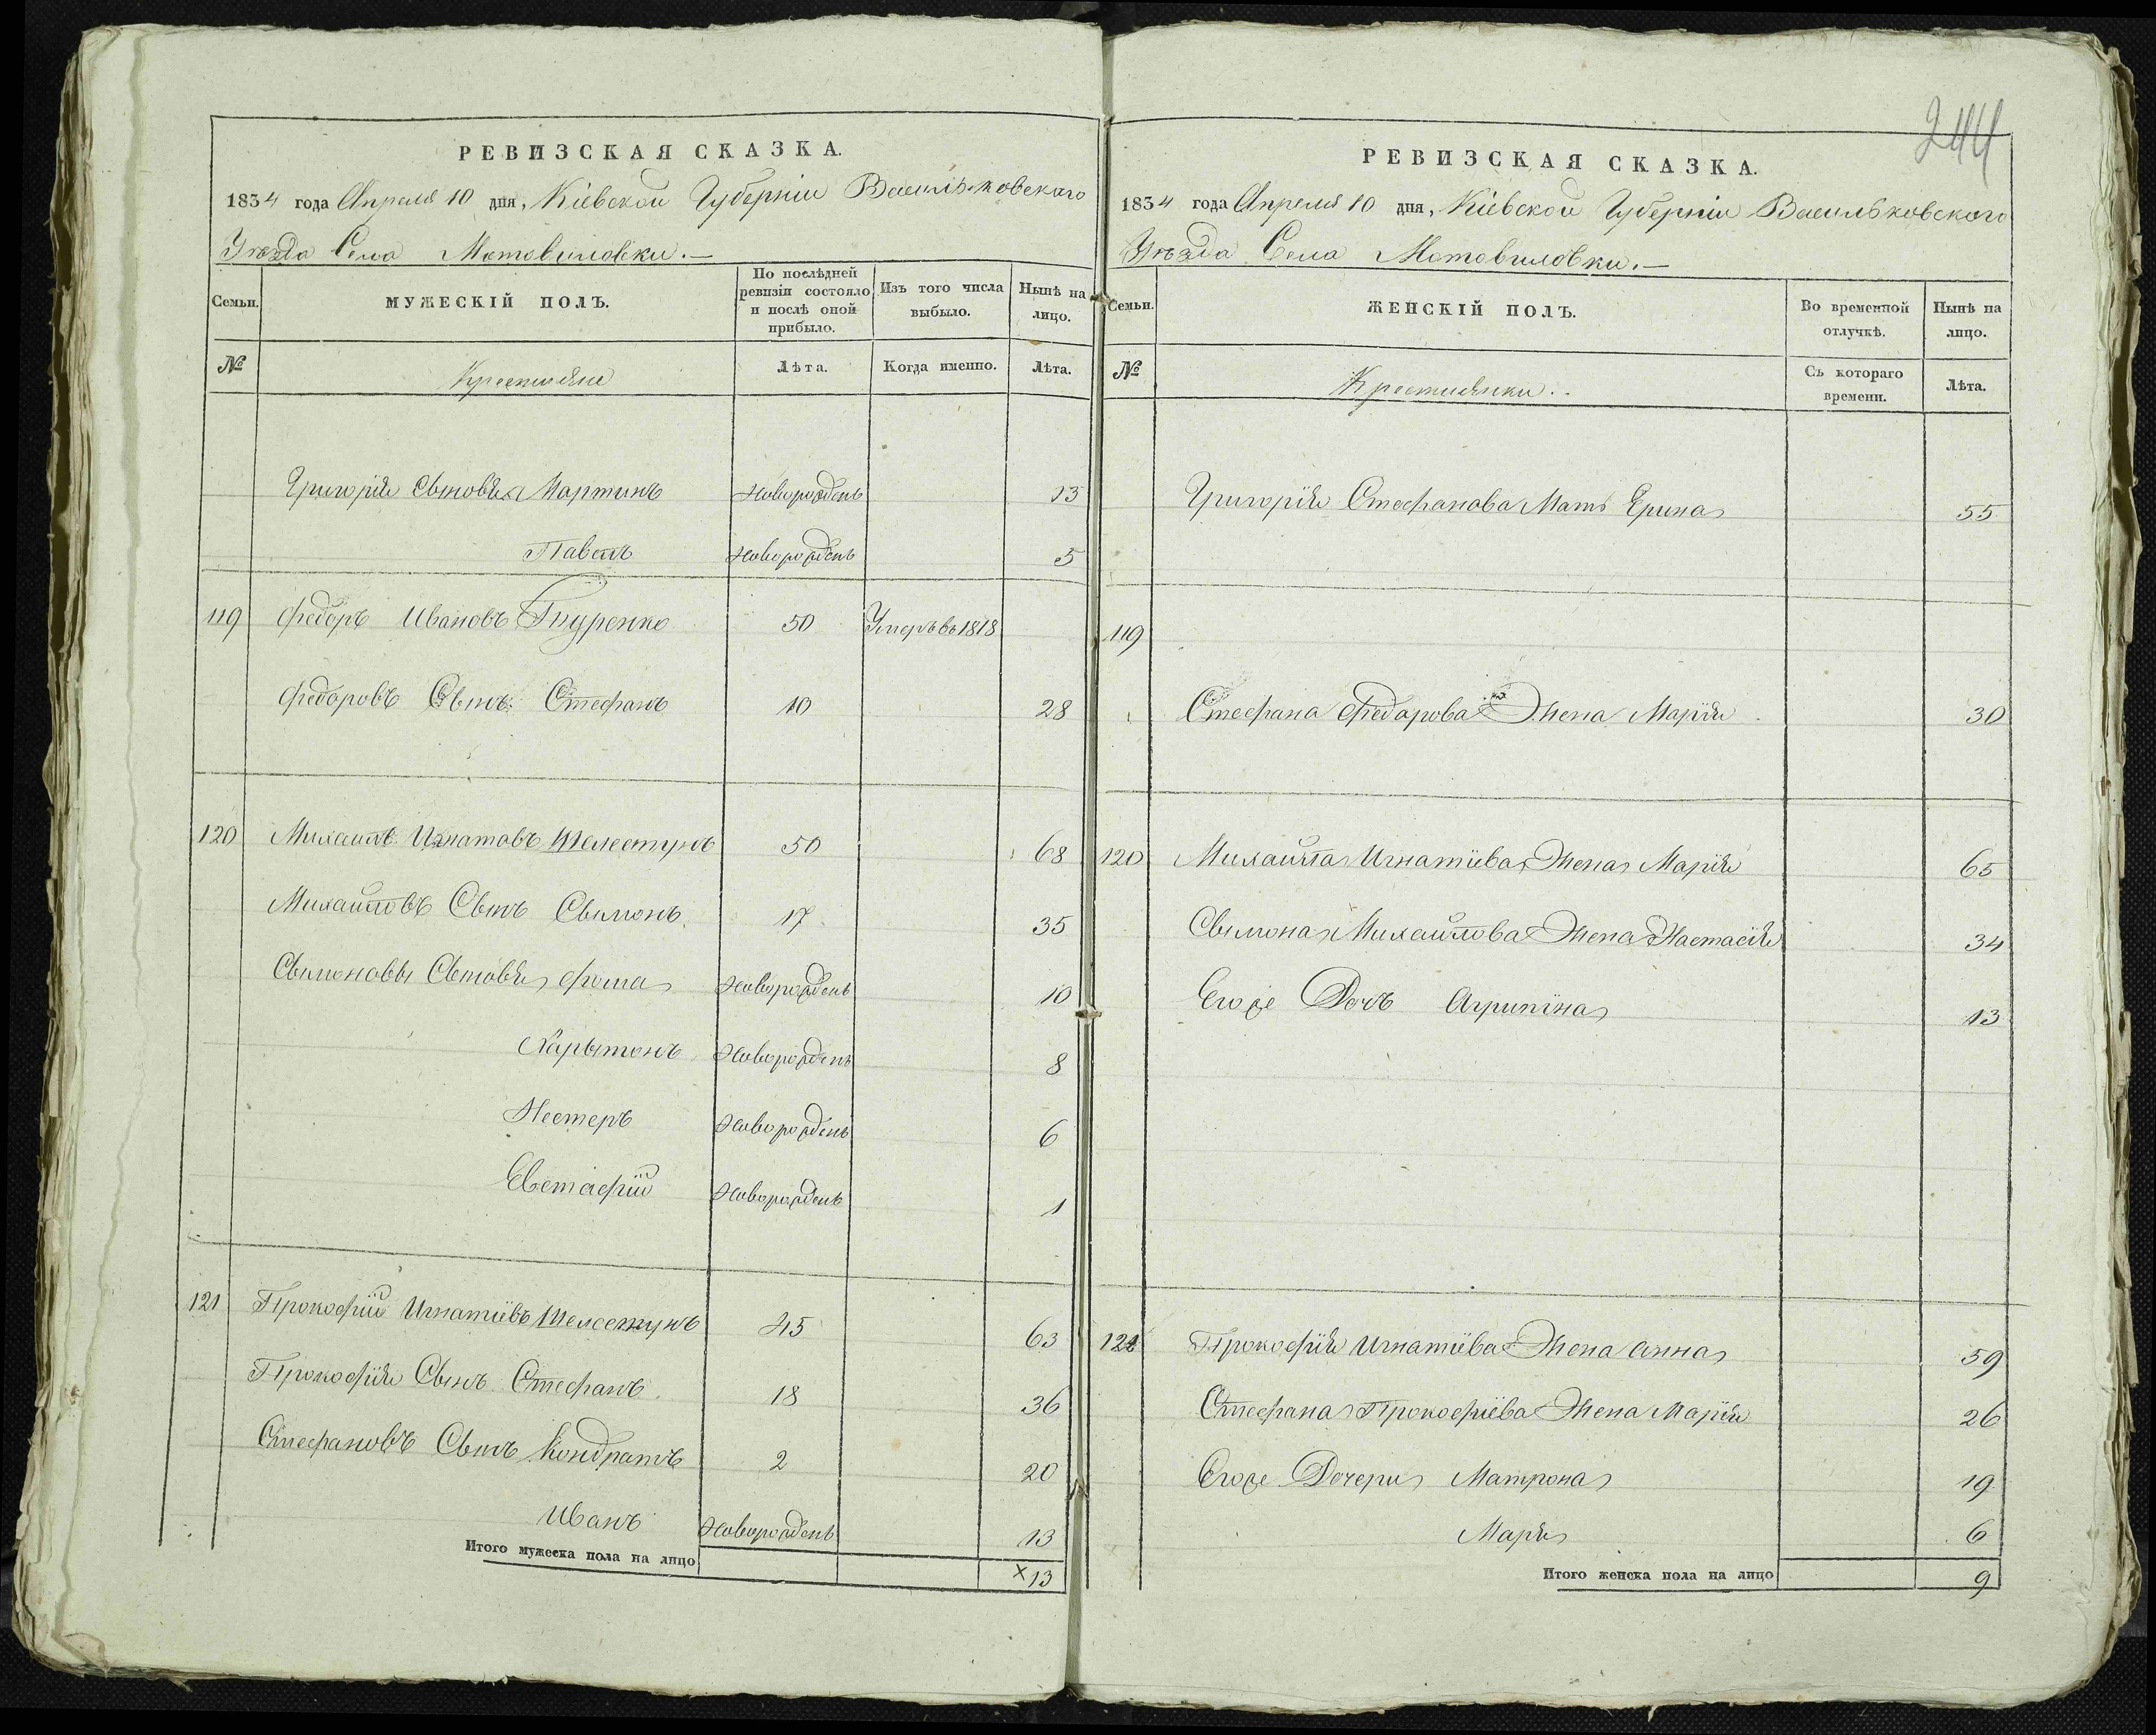 244
РЕВИЗСКАЯ СКАЗКА.
1834 года Апреля 10 дня, Кіевской Губерніи Васильковскаго
Уѣзда Села Мотовиловки.—
Семьи.
МУЖЕСКІЙ ПОЛЪ.
По послѣдней ревизіи состояло и послѣ оной прибыло.
Изъ того числа выбыло.
Нынѣ на лицо.
№
Крестьяне
Лѣта.
Когда именно.
Лѣта.
Григорія Сыновья Мартинъ Новорожденъ 13
Павелъ Новорожденъ 5
119 Федоръ Ивановъ 50 Умеръ въ 1818
Федоровъ Сынъ Стефанъ 10 28
120 Михаилъ Игнатовъ Шелестунъ 50 68
Михайловъ Сынъ Сымонъ 17 35
Сымоновы Сыновья Фома Новорожденъ 10
Харытонъ Новорожденъ 8
Нестеръ Новорожденъ 6
Евстафій Новорожденъ 1
121 Прокофій Игнатіевъ Шелестунъ 45 63
Прокофія Сынъ Стефанъ 18 36
Стефановъ Сынъ Кондратъ 2 20
Иванъ Новорожденъ 13
Итого мужеска пола на лицо 13
РЕВИЗСКАЯ СКАЗКА.
1834 года Апреля 10 дня, Кіевской Губерніи Васильковского
Уѣзда Села Мотовиловки.—
Семьи.
ЖЕНСКІЙ ПОЛЪ.
Во временной отлучкѣ.
Нынѣ на лицо.
№
Крестьянки.
Съ котораго времени.
Лѣта.
Григорія Стефанова Мать Ерина 55
119
Стефана Федорова Жена Марія 30
120 Михайла Игнатіева Жена Марія 65
Сымона Михайлова Жена Настасія 34
Егоже Дочъ Агрипина 13
121 Прокофія Игнатіева Жена Анна 59
Стефана Прокофіева Жена Марія 26
Егоже Дочери Матрона 19
Марія 6
Итого женска пола на лицо 9